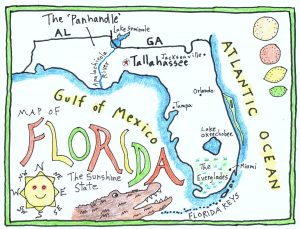 The 'Panhandle'
AL
Lake Seminole
GA
Apalachicola River
Tallahassee
Jacksonville
ATLANTIC OCEAN
Gulf of Mexico
Orlando
Tampa
MAP OF
FLORIDA
Lake Okeechobee
Miami
The Everglades
FLORIDA KEYS
N
W
E
S
The Sunshine
State